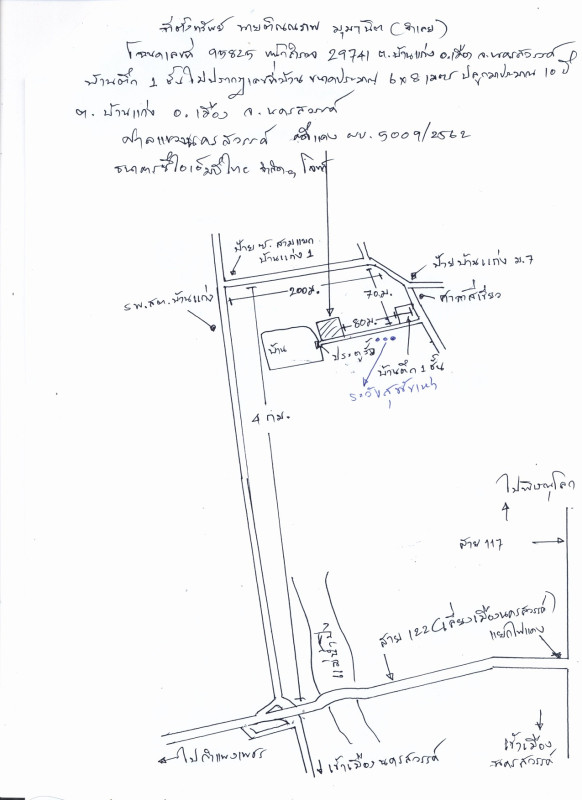 ที่ตั้งทรัพย์ นาย (จำเลย)
โฉนดเลขที่ 95825 หน้าสำรวจ 29741 ต.บ้านแก่ง อ.เมือง จ.นครสวรรค์
บ้านตึก 1 ชั้น ไม่ปรากฏเลขที่บ้าน ขนาดประมาณ 6x8 เมตร ปลูกมาประมาณ 10 ปี
ต. บ้านแก่ง อ. เมือง จ. นครสวรรค์
ศาลแขวงนครสวรรค์ คดีแดง ผบ. 5009/2562
ธนาคารซีไอเอ็มบีไทย จำกัดฯ โจทก์
ป้าย ซ. สามแยก
บ้านแก่ง 1
ป้าย บ้านแก่ง ม.7
รพ.สต.บ้านแก่ง
200ม.
70ม.
80ม.
บ้าน
ประตูรั้ว
บ้านตึก 1 ชั้น
ระวังสุนัขเห่า
4 กม.
ไปพิษณุโลก
สาย 117
สาย 122 (เลี่ยงเมืองนครสวรรค์)
แยกไฟแดง
ไปกำแพงเพชร
เข้าเมืองนครสวรรค์
เข้าเมือง
นครสวรรค์